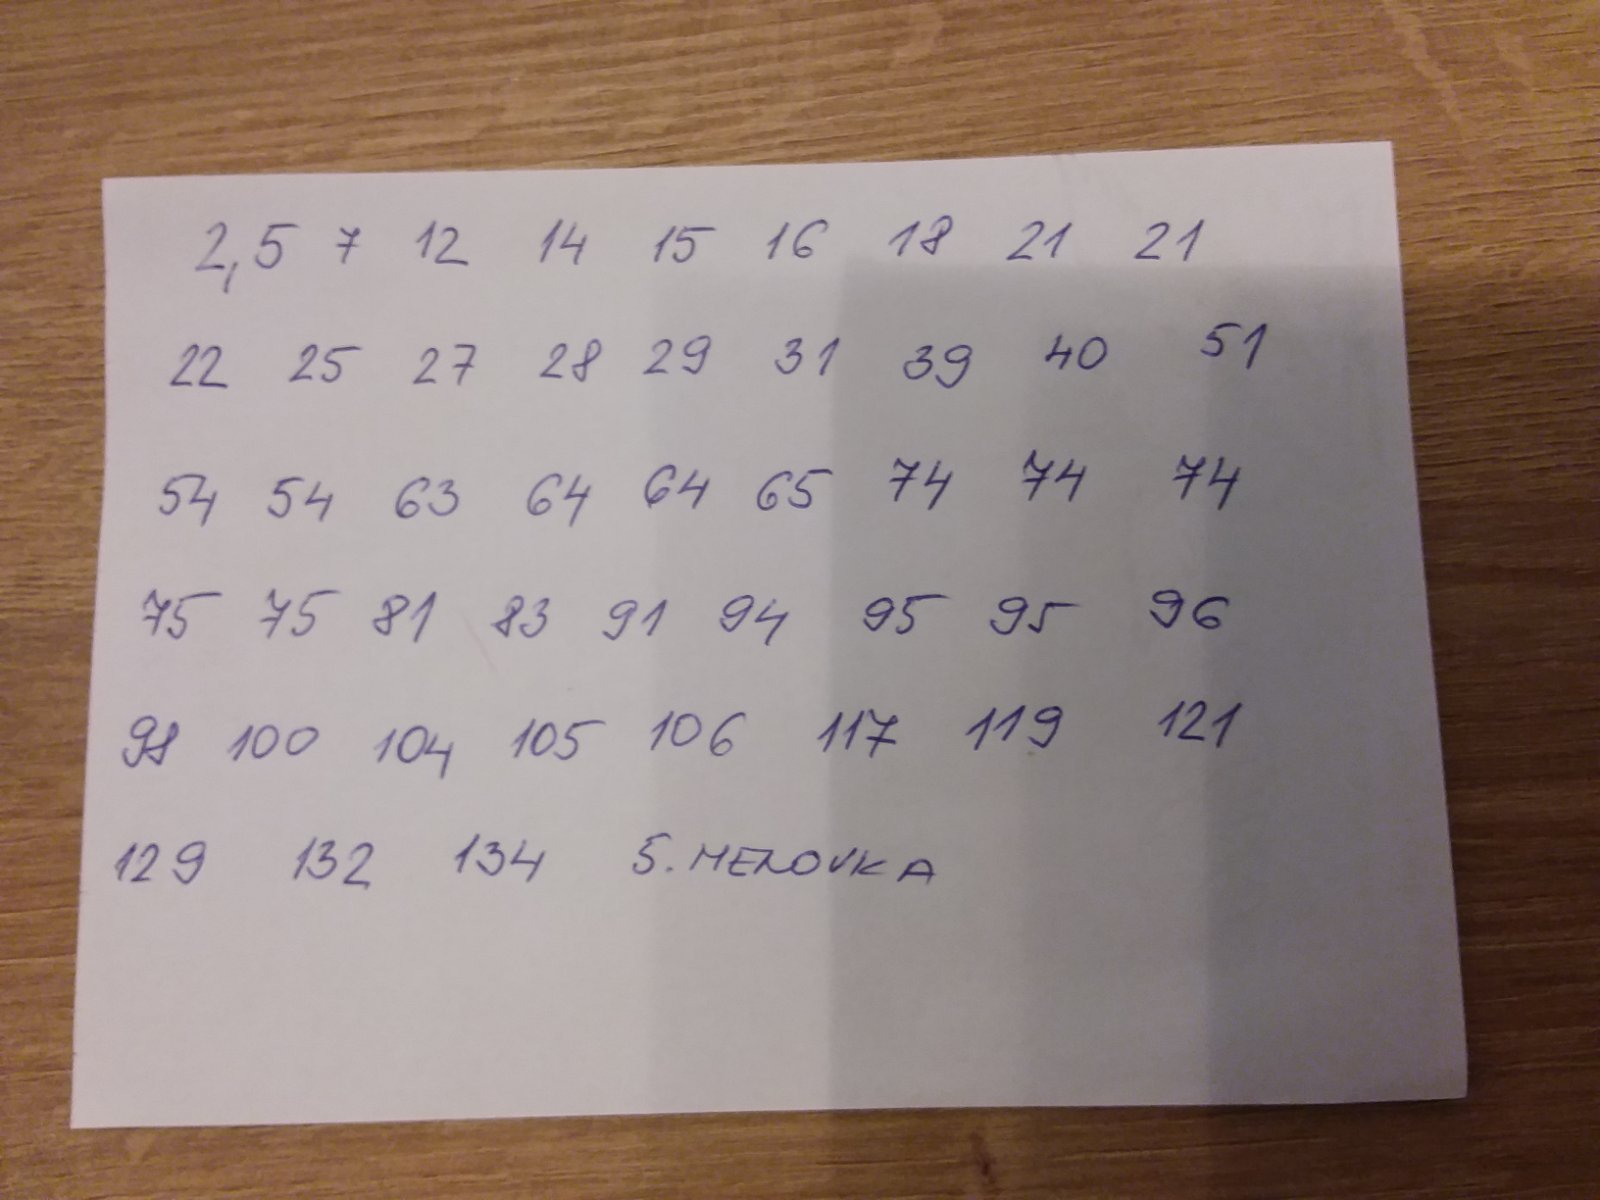 2,5 7 12 14 15 16 18 21 21
22 25 27 28 29 31 39 40 51
54 54 63 64 64 65 74 74 74
75 75 81 83 91 94 95 95 96
98 100 104 105 106 117 119 121
129 132 134 5. MENOVKA